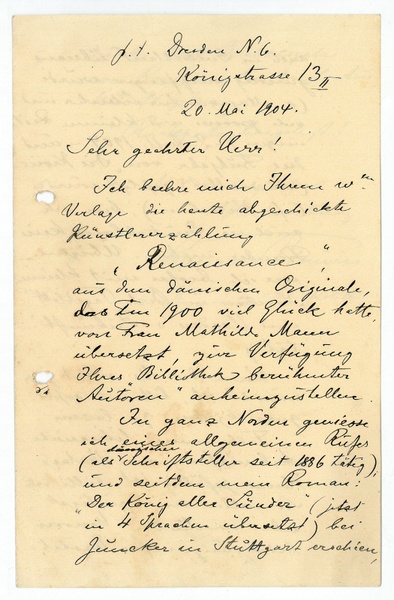 p. t. Dresden N. 6.
Königstrasse 13 II
20. Mai 1904.
Sehr geehrter Herr!
Ich beehre mich Ihrem w.
Verlage die heute abgeschickte
Künstlererzählung
„Renaissance",
aus dem dänischen Originale,
das Im 1900 viel Glück hatte,
von Frau Mathilde Mann
übersetzt, zur Verfügung
Ihres Bibliothek berühmter
Autoren" anheimzustellen.
In ganz Norden geniesse
ich eines allgemeinen Rufes
(als dänischer Schriftsteller seit 1886 tätig),
und seitdem mein Roman:
„Der König aller Sünder" (jetzt
in 4 Sprachen übersetzt) bei
Juncker in Stuttgart erschien,